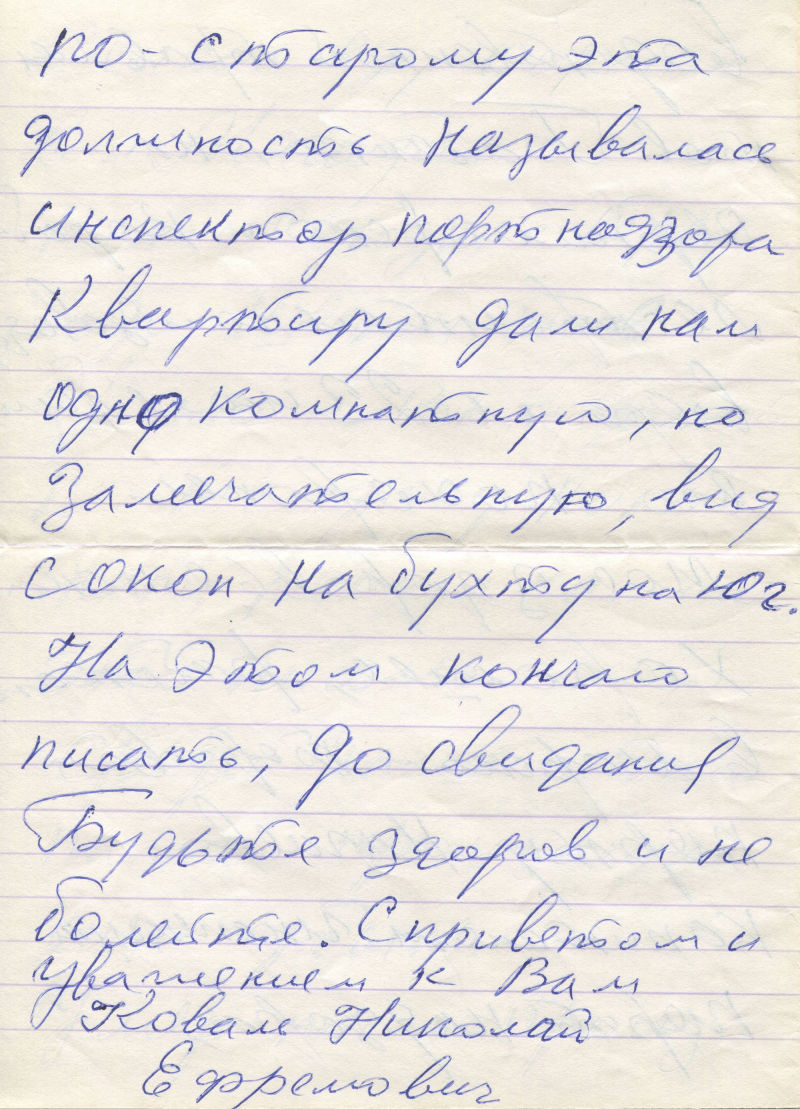 по-старому эта
должность называлась
инспектор портнадзора
Квартиру дали нам
одно комнатную, но
замечательную, вид
с окон на бухту на юг.
На этом кончаю
писать, до свидания
Будьте здоров и не
болейте. С приветом и
уважением к Вам
Коваль Николай
Ефремович